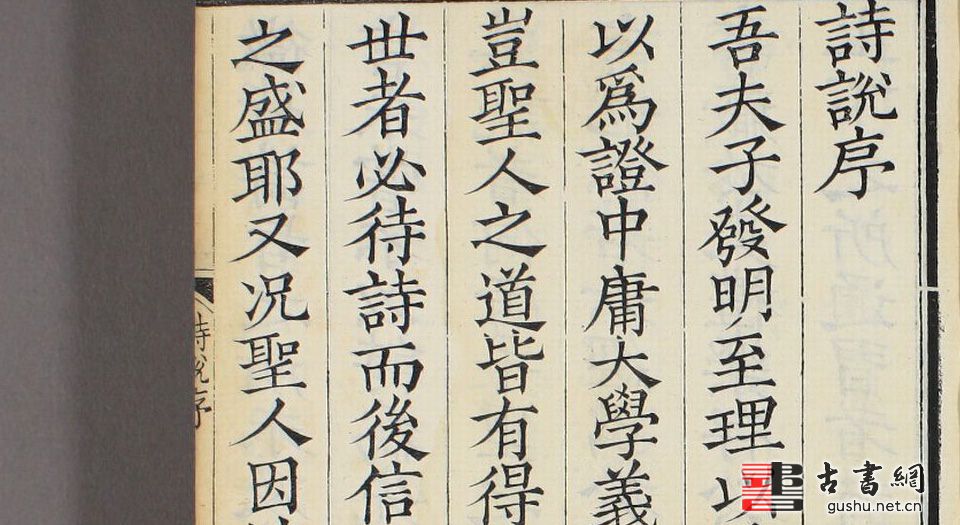 詩說序
吾夫子發明至理以
以爲證中庸大學義
豈聖人之道皆有得
世者必待詩而後信
之盛耶又况聖人因
詩說序
古書網
gushu.net.cn